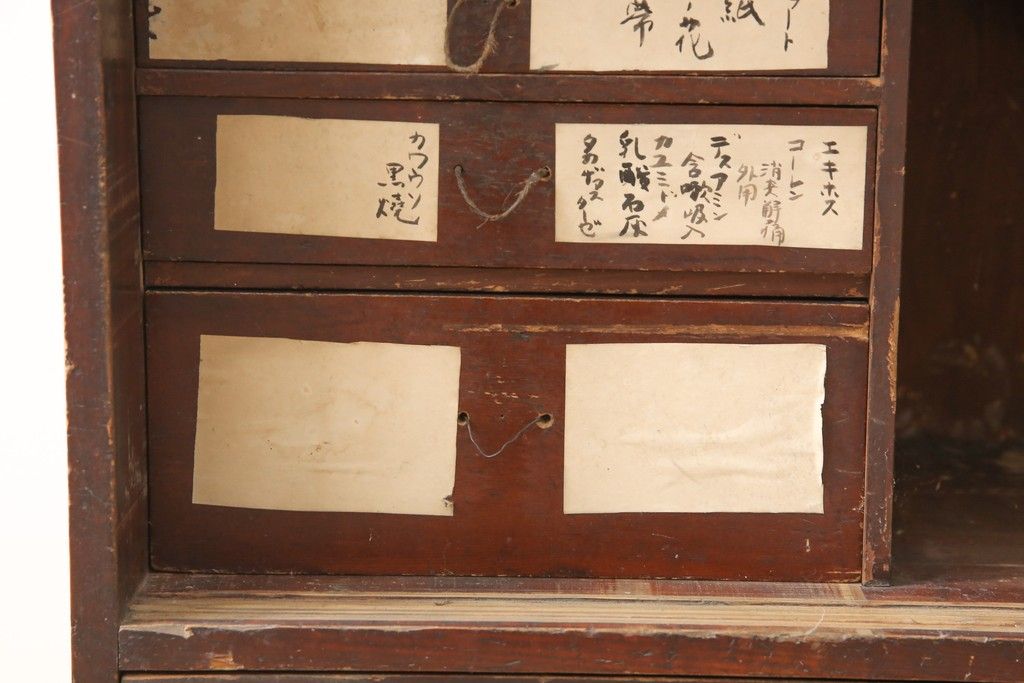 ート
紙
花
帯
エキホス
コーヒン
消炎解痛
外用
デスアミン
含嗽吸入
カユミドメ
乳酸石灰
タカヂアスターゼ
カワウソ
黒焼